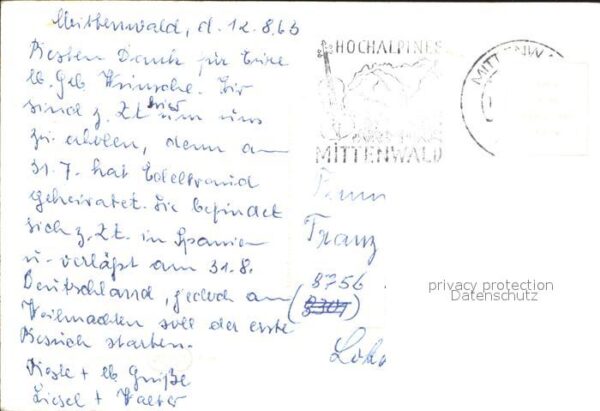 Mittenwald, d. 12.8.63
Besten Dank für Eure
lb. Geb. Wünsche. Wir
sind z. Zt. hier um uns
zu erholen, denn am
31.7. hat Edeltraud
geheiratet. Sie befindet
sich z. Zt. in Spanien
u. verläßt am 31.8.
Deutschland, jedoch an
Weihnachten soll der erste
Besuch starten.
Beste + lb. Grüße
Liesel + Walter
HOCHALPINES
MITTENWALD
MITTENW
Franz
8756
(8701)
privacy protection
Datenschutz